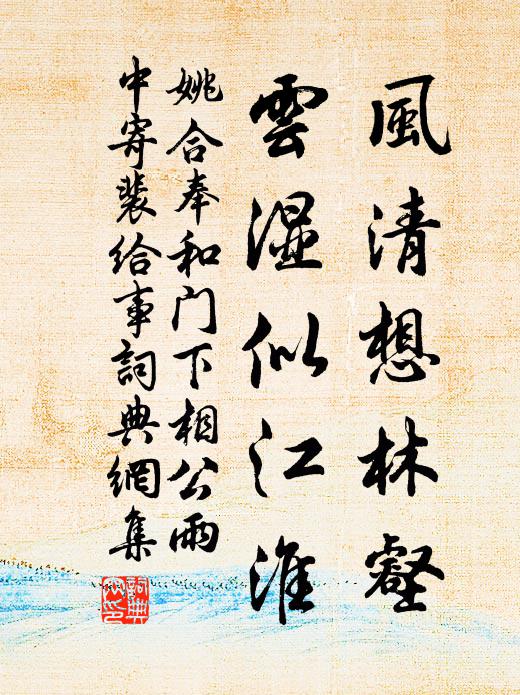 風清想林壑
雲湿似江淮
姚合奉和门下相公雨
中寄裴给事詞典網集